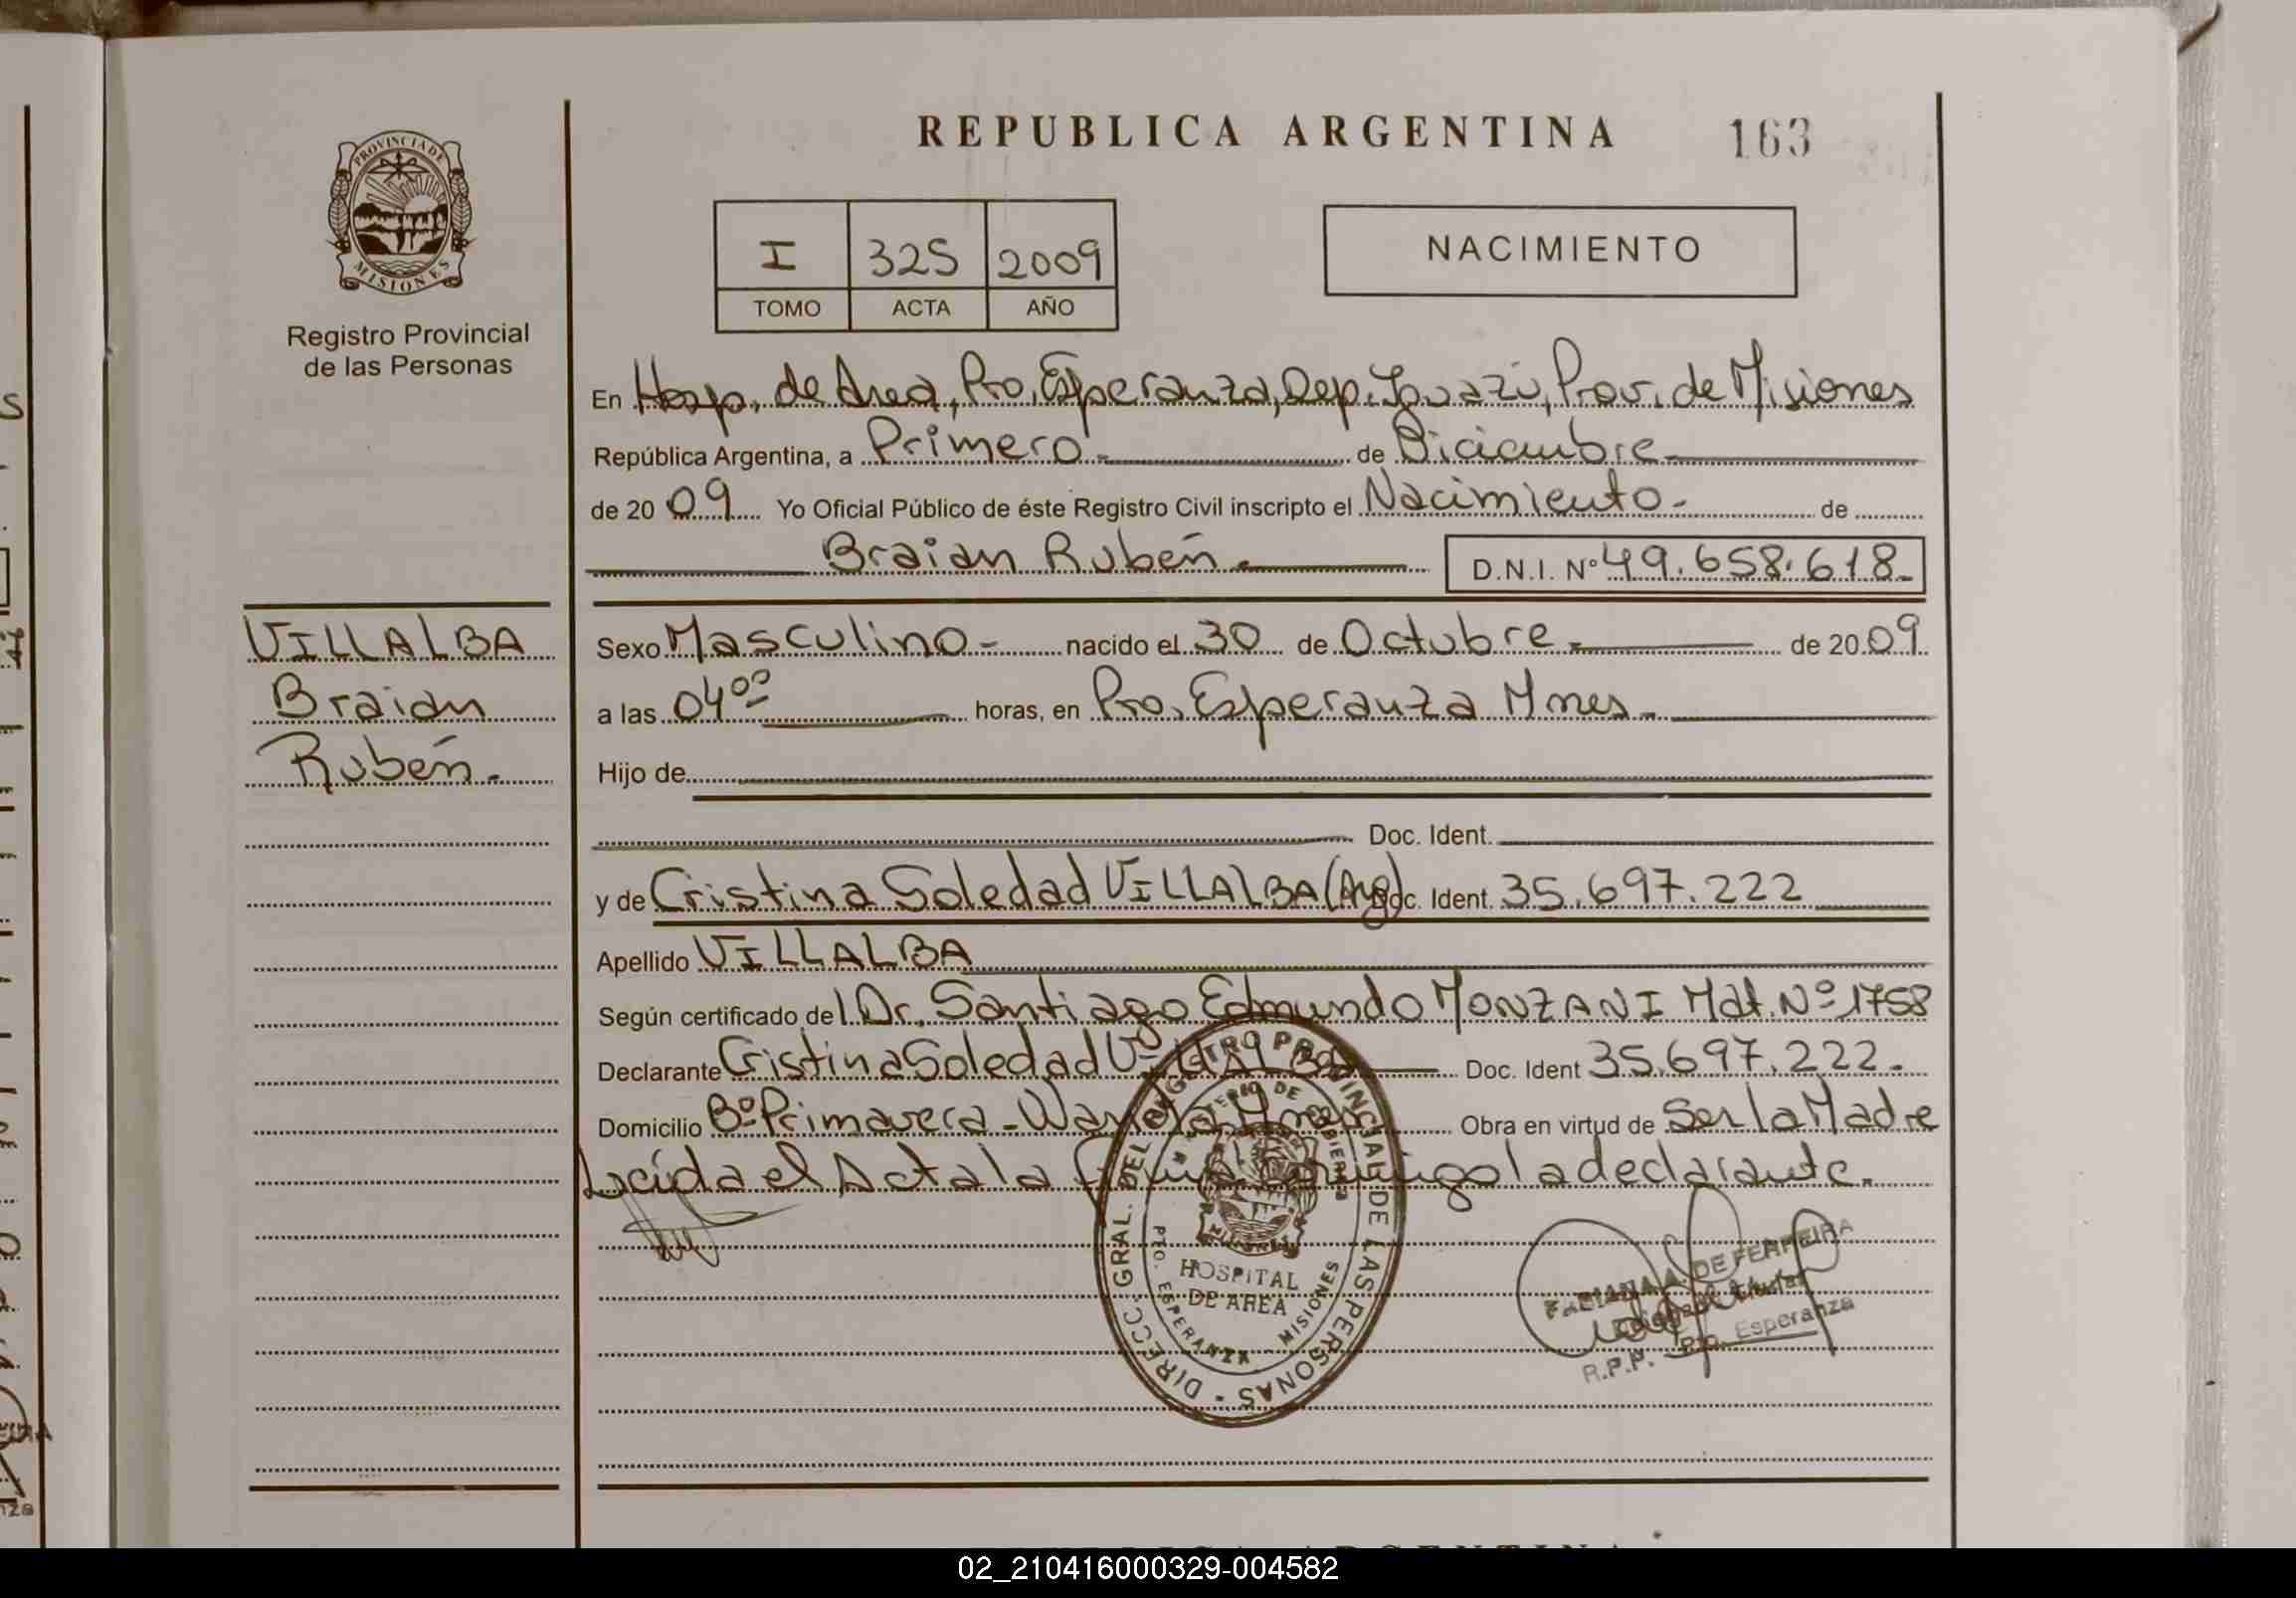 REPUBLICA ARGENTINA 163
PROVINCIA DE
MISIONES
Registro Provincial
de las Personas
I 325 2009
TOMO ACTA AÑO
NACIMIENTO
En Hosp. de Area, Pto. Esperanza, Dep. Iguazú, Prov. de Misiones
República Argentina, a Primero.- de Diciembre
de 20 09 Yo Oficial Público de éste Registro Civil inscripto el Nacimiento- de
Braian Rubén.- D.N.I. Nº 49.658.618-
VILLALBA
Braian
Rubén.
Sexo Masculino- nacido el 30 de Octubre.- de 20 09
a las 04ºº horas, en Pto. Esperanza Mnes.-
Hijo de
Doc. Ident.
y de Cristina Soledad VILLALBA (Arg) Doc. Ident. 35.697.222
Apellido VILLALBA
Según certificado del Dr. Santiago Edmundo MONZANI Mat. Nº 1758
Declarante Cristina Soledad VILLALBA Doc. Ident 35.697.222.-
Domicilio Bº Primavera - Wanda Mnes Obra en virtud de Ser la Madre
Leída el Acta la firma conmigo la declarante.
DIRECC. GRAL. DEL REGISTRO PROVINCIAL DE LAS PERSONAS
MINISTERIO DE GOBIERNO
MISIONES
HOSPITAL
DE AREA
PTO. ESPERANZA - MISIONES
FABIANA A. DE FERREIRA
Delegada Titular
R.P.P. - Pto. Esperanza
02_210416000329-004582